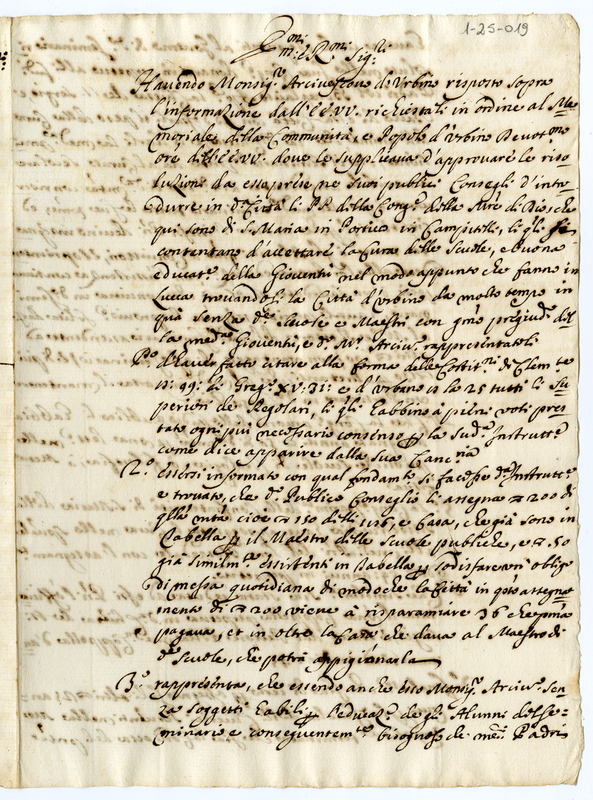 1-25-019
Em.mi e R.mi Sig.ri
Havendo Monsig.r Arcivescovo di Urbino risposto sopra
l'informazione dall'EE.VV. richiestali in ordine al Me
moriale della Communità, e Popolo d'Urbino Devot.mo
ore dell'EE.VV. dove le supplicava d'approvare le riso
luzioni da esse prese ne suoi publici Consegli d'intro
durre in d.a Città li PP. della Cong.e della Mre di Dio, che
qui sono di S. Maria in Portico in Campitelli, li q.li si
contentano d'accettare la Cura delle Scuole, e buona
educat.e della Gioventù nel modo appunto che fanno in
Lucca trovandosi la Città d'Urbino da molto tempo in
quà senza d.e Scuole e Maestri con gran pregiud.o del
la med.a Gioventù, e d.o M.r Arciv.o rappresentatoli
P.o d'haver fatto citare alla forma delle Costit.ni di Clem.te
8: 99: di Greg.o XV. 31: e d'Urbano 8 la 25 tutti li Su
periori de Regolari, li q.li habbino à pieni voti pres
tato ogni più necessario consenso p la sud.a Instrutt.e
come dice apparire dalla sua Canc.ria
2.o essersi informato con qual fondam.to si facesse d.a Instrutt.e
e trovato, che d.o Publico Conseglio li assegna 200 di
q.lla m.tà cioè 150 delli 186, e Casa, che già sono in
Tabella p il Maestro delle Scuole publiche, e 50
già similm.te essistenti in Tabella p sodisfare un obligo
di messa quotidiana di modo che la Città in q.sto assegna
mento di 200 viene à risparamiare 36 che prima
pagava, et in oltre la Casa che dava al Maestro di
d.e Scuole, che potrà appigionarla
3.o rappresenta, che essendo anche esso Monsig.r Arciv.o sen
za soggetti habili p l'educaz.e de gl'Alunni del Se-
minario e conseguentem.te bisognoso de med.i Padri